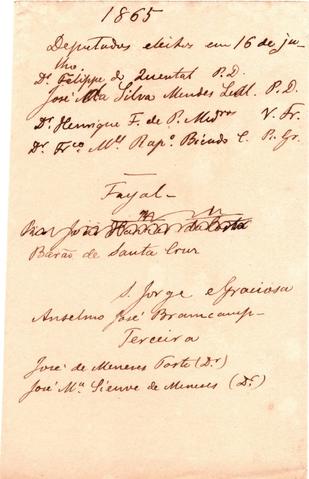 1865
Deputados eleitos em 16 de ju-
lho
Dr Filippe de Quental P. D.
José M.a da Silva Mendes Leal P. D.
Dr Henrique F. de P. Medros V. Fr.
Dr Frco Mel Rapo Bicudo C. P. Gr.
Fayal—
José
Barão de Santa Cruz
S. Jorge e Graciosa
Anselmo José Bramcamp—
Terceira
José de Meneses Forte (Dr)
José Ma Sieuve de Meneses (Dr)